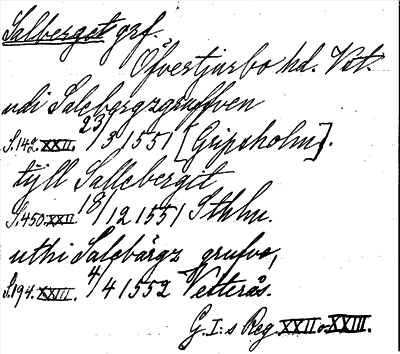 Salberget grf.
Öfvertjurbo hd. Vstm.
udi Salebergzgruffven
S. 142. XXII. 23/3 1551 [Gripsholm].
tijll Sallebergit
S. 450. XXII. 18/12 1551 Sthlm.
uthi Salebärgz grufve,
S. 194. XXIII. 4/4 1552 Vesterås.
G. I:s Reg. XXII o. XXIII.